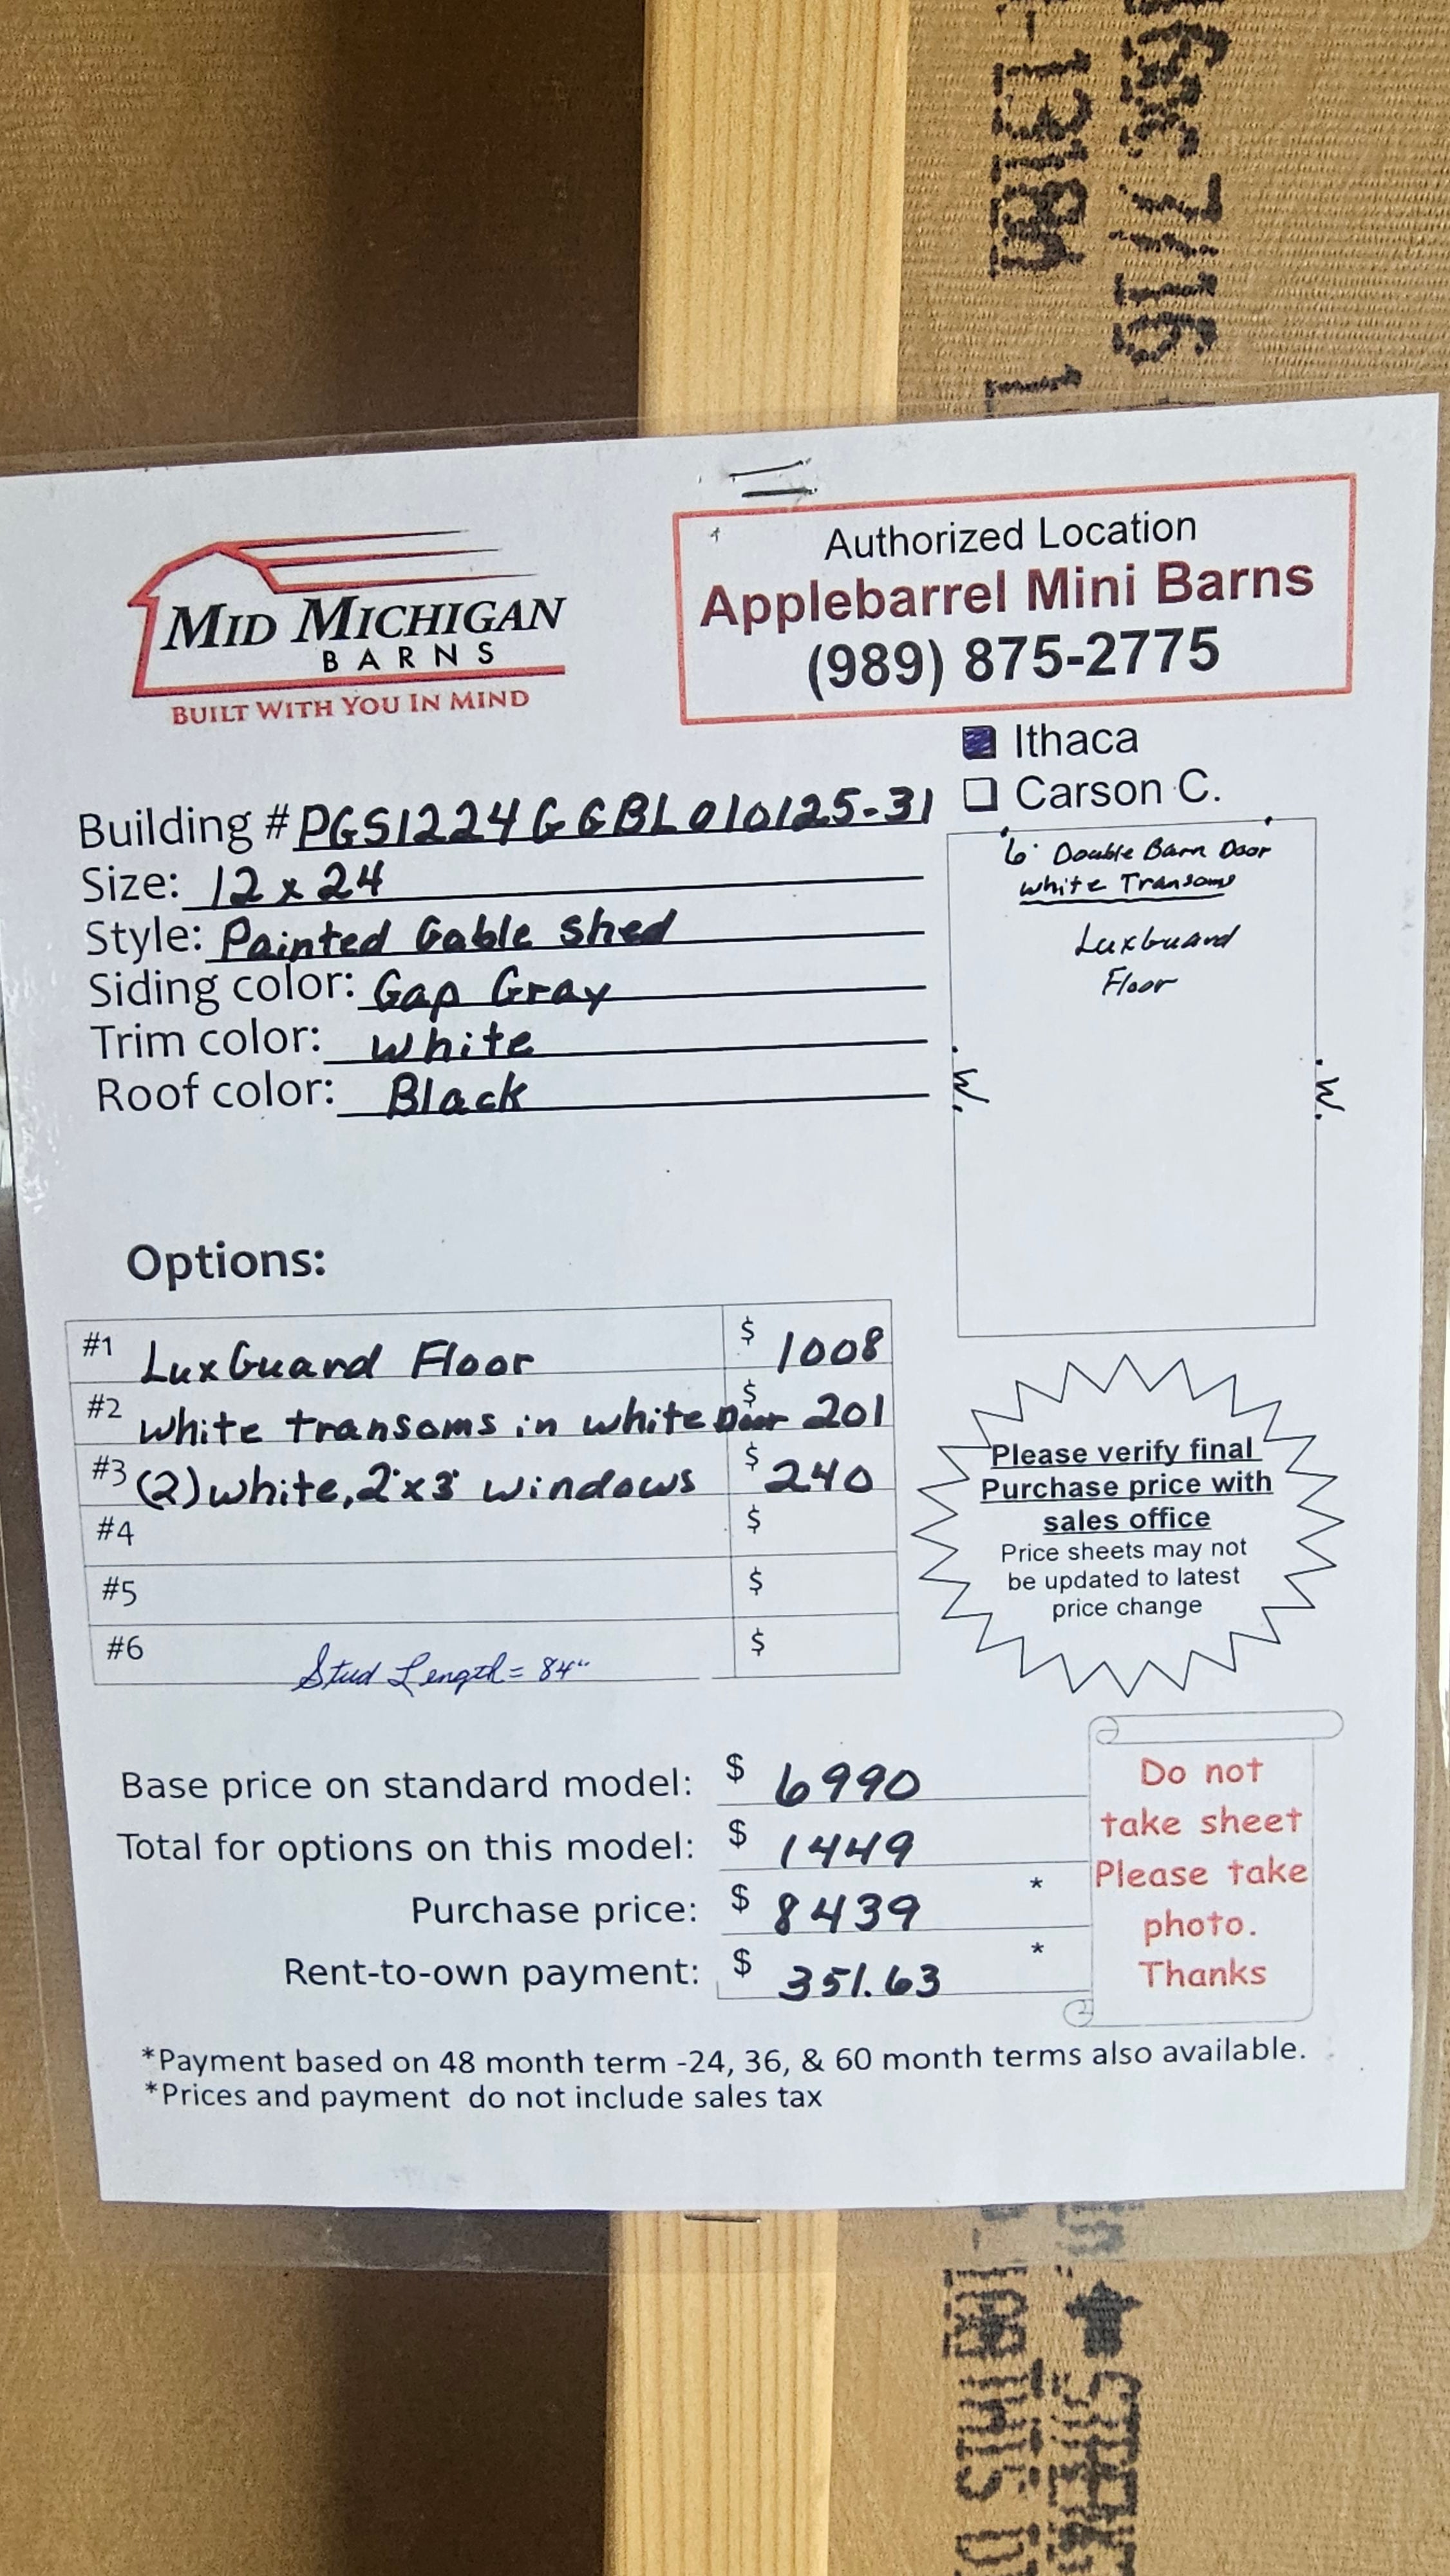 Authorized Location
Applebarrel Mini Barns
(989) 875-2775
MID MICHIGAN
BARNS
BUILT WITH YOU IN MIND
Ithaca
Carson C.
Building # PGS1224GGBL010125-31
Size: 12 x 24
Style: Painted Gable Shed
Siding color: Gap Gray
Trim color: White
Roof color: Black
6' Double Barn Door
White Transoms
LuxGuard
Floor
W.
W.
Options:
#1 LuxGuard Floor $ 1008
#2 White transoms in white Door $ 201
#3 (2) white, 2'x3' windows $ 240
#4 $
#5 $
#6 Stud Length = 84" $
Please verify final
Purchase price with
sales office
Price sheets may not
be updated to latest
price change
Base price on standard model: $ 6990
Total for options on this model: $ 1449
Purchase price: $ 8439 *
Rent-to-own payment: $ 351.63 *
Do not
take sheet
Please take
photo.
Thanks
*Payment based on 48 month term -24, 36, & 60 month terms also available.
*Prices and payment do not include sales tax